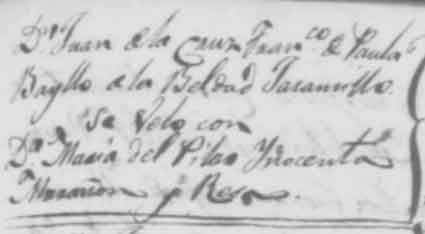 Dn. Juan de la Cruz Franco. de Paula
Bayllo de la Beldad Jaramillo.
se Velo con
Da. Maria del Pilar Ynocenta
Marañon y Resa.